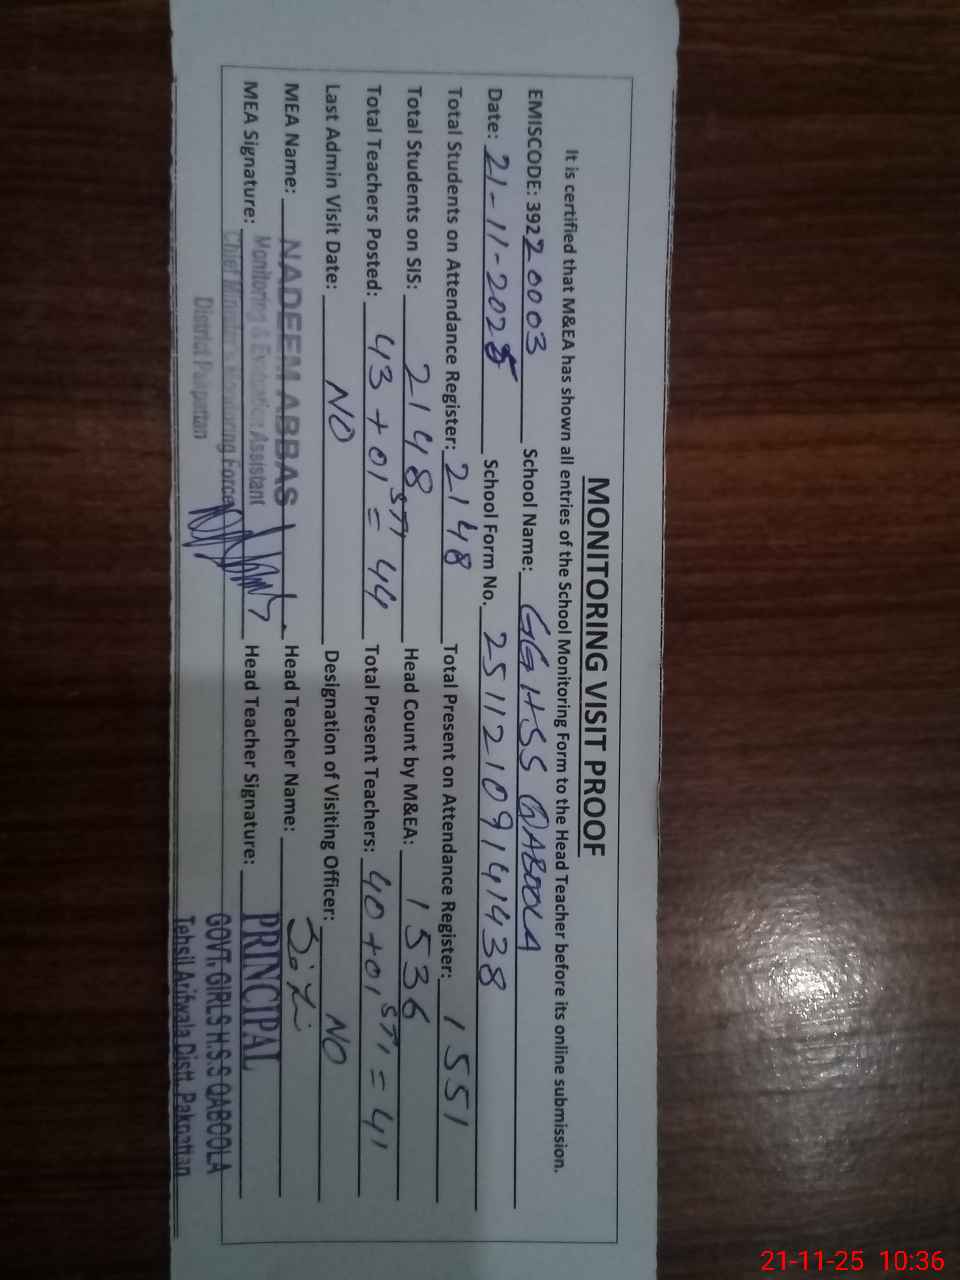 MONITORING VISIT PROOF
It is certified that M&EA has shown all entries of the School Monitoring Form to the Head Teacher before its online submission.
EMISCODE: 39220003 School Name: GGHSS QABOOLA
Date: 21-11-2025 School Form No. 25112109141438
Total Students on Attendance Register: 2148 Total Present on Attendance Register: 1551
Total Students on SIS: 2148 Head Count by M&EA: 1536
Total Teachers Posted: 43+01 STI = 44 Total Present Teachers: 40+01 STI = 41
Last Admin Visit Date: NO Designation of Visiting Officer: NO
MEA Name: NADEEM ABBAS Head Teacher Name:
Monitoring & Evaluation Assistant
MEA Signature: Head Teacher Signature: PRINCIPAL
Chief Minister's Monitoring Force
District Pakpattan
GOVT. GIRLS H.S.S QABOOLA
Tehsil Arifwala Distt. Pakpattan
21-11-25 10:36